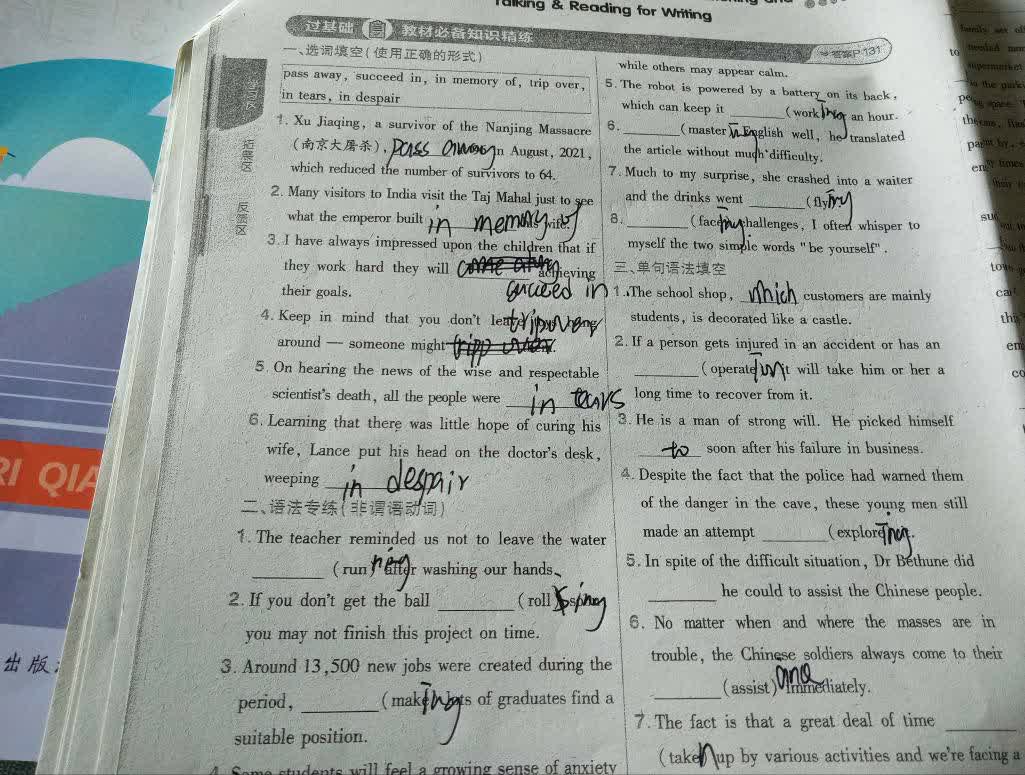 Talking & Reading for Writing
过基础 教材必备知识精练
答案P.131
一、选词填空(使用正确的形式)
pass away, succeed in, in memory of, trip over,
in tears, in despair
1. Xu Jiaqing, a survivor of the Nanjing Massacre
(南京大屠杀), pass away in August, 2021,
which reduced the number of survivors to 64.
2. Many visitors to India visit the Taj Mahal just to see
what the emperor built in memory of his wife.
3. I have always impressed upon the children that if
they work hard they will achieving
succeed in
their goals.
4. Keep in mind that you don't
around — someone might
5. On hearing the news of the wise and respectable
scientist's death, all the people were in tears
6. Learning that there was little hope of curing his
wife, Lance put his head on the doctor's desk,
weeping in despair
二、语法专练(非谓语动词)
1. The teacher reminded us not to leave the water
(run) ning after washing our hands.
2. If you don't get the ball (roll)
you may not finish this project on time.
3. Around 13,500 new jobs were created during the
period, (make) ing lots of graduates find a
suitable position.
4. Some students will feel a growing sense of anxiety
while others may appear calm.
5. The robot is powered by a battery on its back,
which can keep it (work) ing an hour.
6. (master) ing English well, he translated
the article without much difficulty.
7. Much to my surprise, she crashed into a waiter
and the drinks went (fly) ing
8. (face) challenges, I often whisper to
myself the two simple words "be yourself".
三、单句语法填空
1. The school shop, which customers are mainly
students, is decorated like a castle.
2. If a person gets injured in an accident or has an
(operate) it will take him or her a
long time to recover from it.
3. He is a man of strong will. He picked himself
to soon after his failure in business.
4. Despite the fact that the police had warned them
of the danger in the cave, these young men still
made an attempt (explore) ing.
5. In spite of the difficult situation, Dr Bethune did
he could to assist the Chinese people.
6. No matter when and where the masses are in
trouble, the Chinese soldiers always come to their
(assist) ance immediately.
7. The fact is that a great deal of time
(take) n up by various activities and we're facing a
拓展区
反馈区
RI QIA
出版